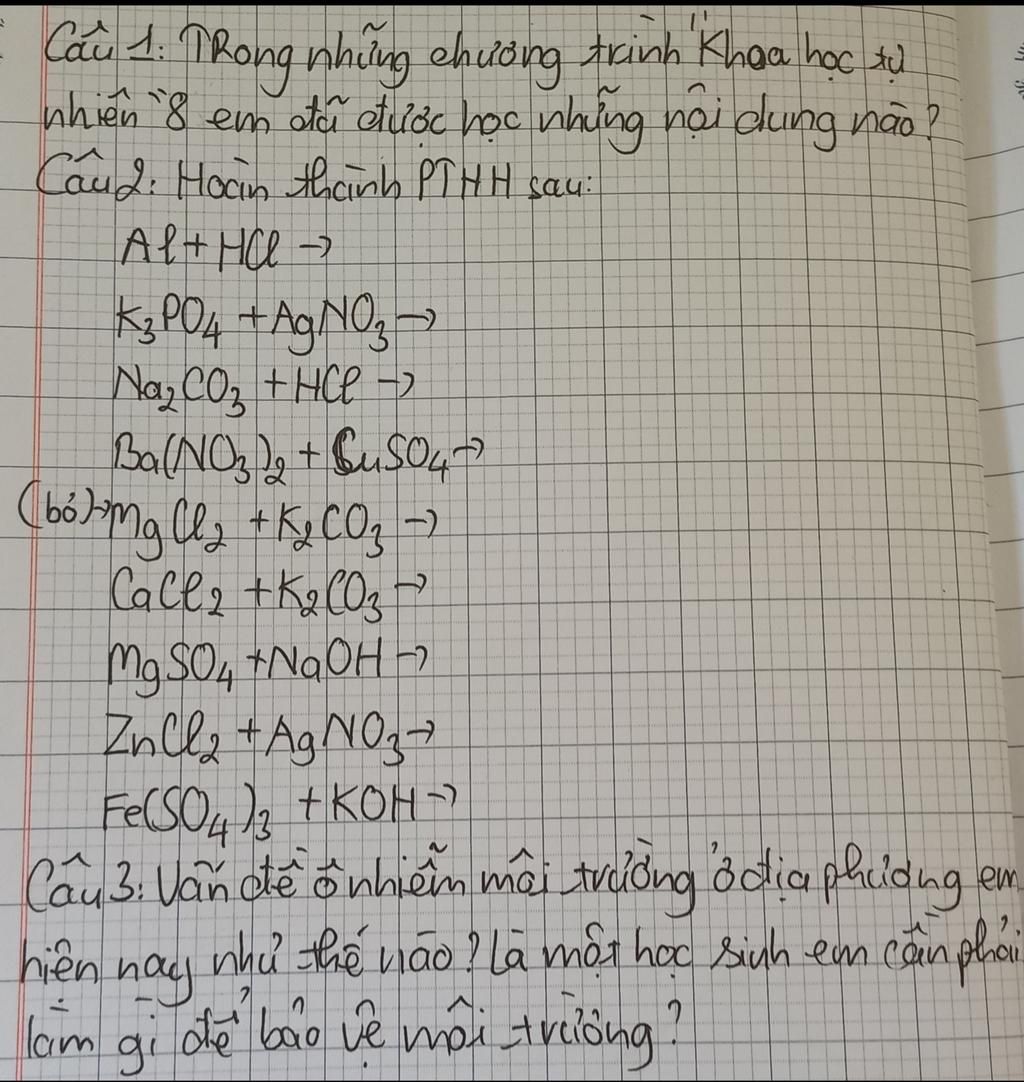 Câu 1: TRong những chương trình "Khoa học tự
nhiên" 8 em đã được học những nội dung nào?
Câu 2: Hoàn thành PTHH sau:
Al + HCl →
K₃PO₄ + AgNO₃ →
Na₂CO₃ + HCl →
Ba(NO₃)₂ + CuSO₄ →
(bỏ) → MgCl₂ + K₂CO₃ →
CaCl₂ + K₂CO₃ →
MgSO₄ + NaOH →
ZnCl₂ + AgNO₃ →
Fe(SO₄)₃ + KOH →
Câu 3: Vấn đề ô nhiễm môi trường ở địa phương em
hiện nay như thế nào? Là một học sinh em cần phải
làm gì để bảo vệ môi trường?